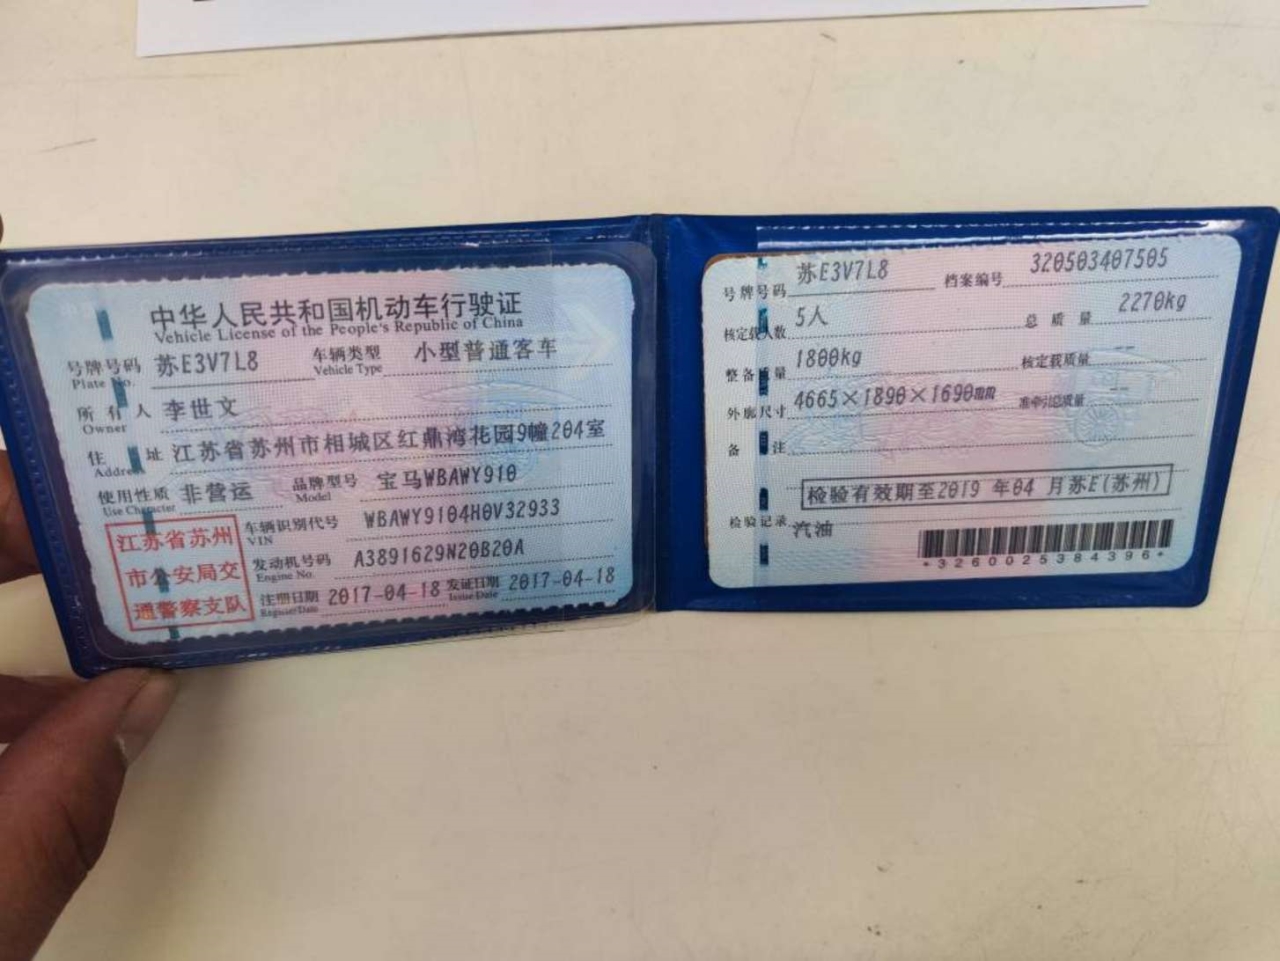 中华人民共和国机动车行驶证
Vehicle License of the People's Republic of China
号牌号码 苏E3V7L8 车辆类型 小型普通客车
Plate No. Vehicle Type
所有人 李世文
Owner
住址 江苏省苏州市相城区红鼎湾花园9幢204室
Address
使用性质 非营运 品牌型号 宝马WBAWY910
Use Character Model
江苏省苏州
市公安局交
通警察支队
车辆识别代号 WBAWY9104H0V32933
VIN
发动机号码 A3891629N20B20A
Engine No.
注册日期 2017-04-18 发证日期 2017-04-18
Register Date Issue Date
号牌号码 苏E3V7L8 档案编号 320503407505
核定载人数 5人 总质量 2270kg
整备质量 1800kg 核定载质量 --
外廓尺寸 4665×1890×1690mm 准牵引总质量 --
备注
检验有效期至2019 年04 月苏E(苏州)
检验记录 汽油
*3260025384396*